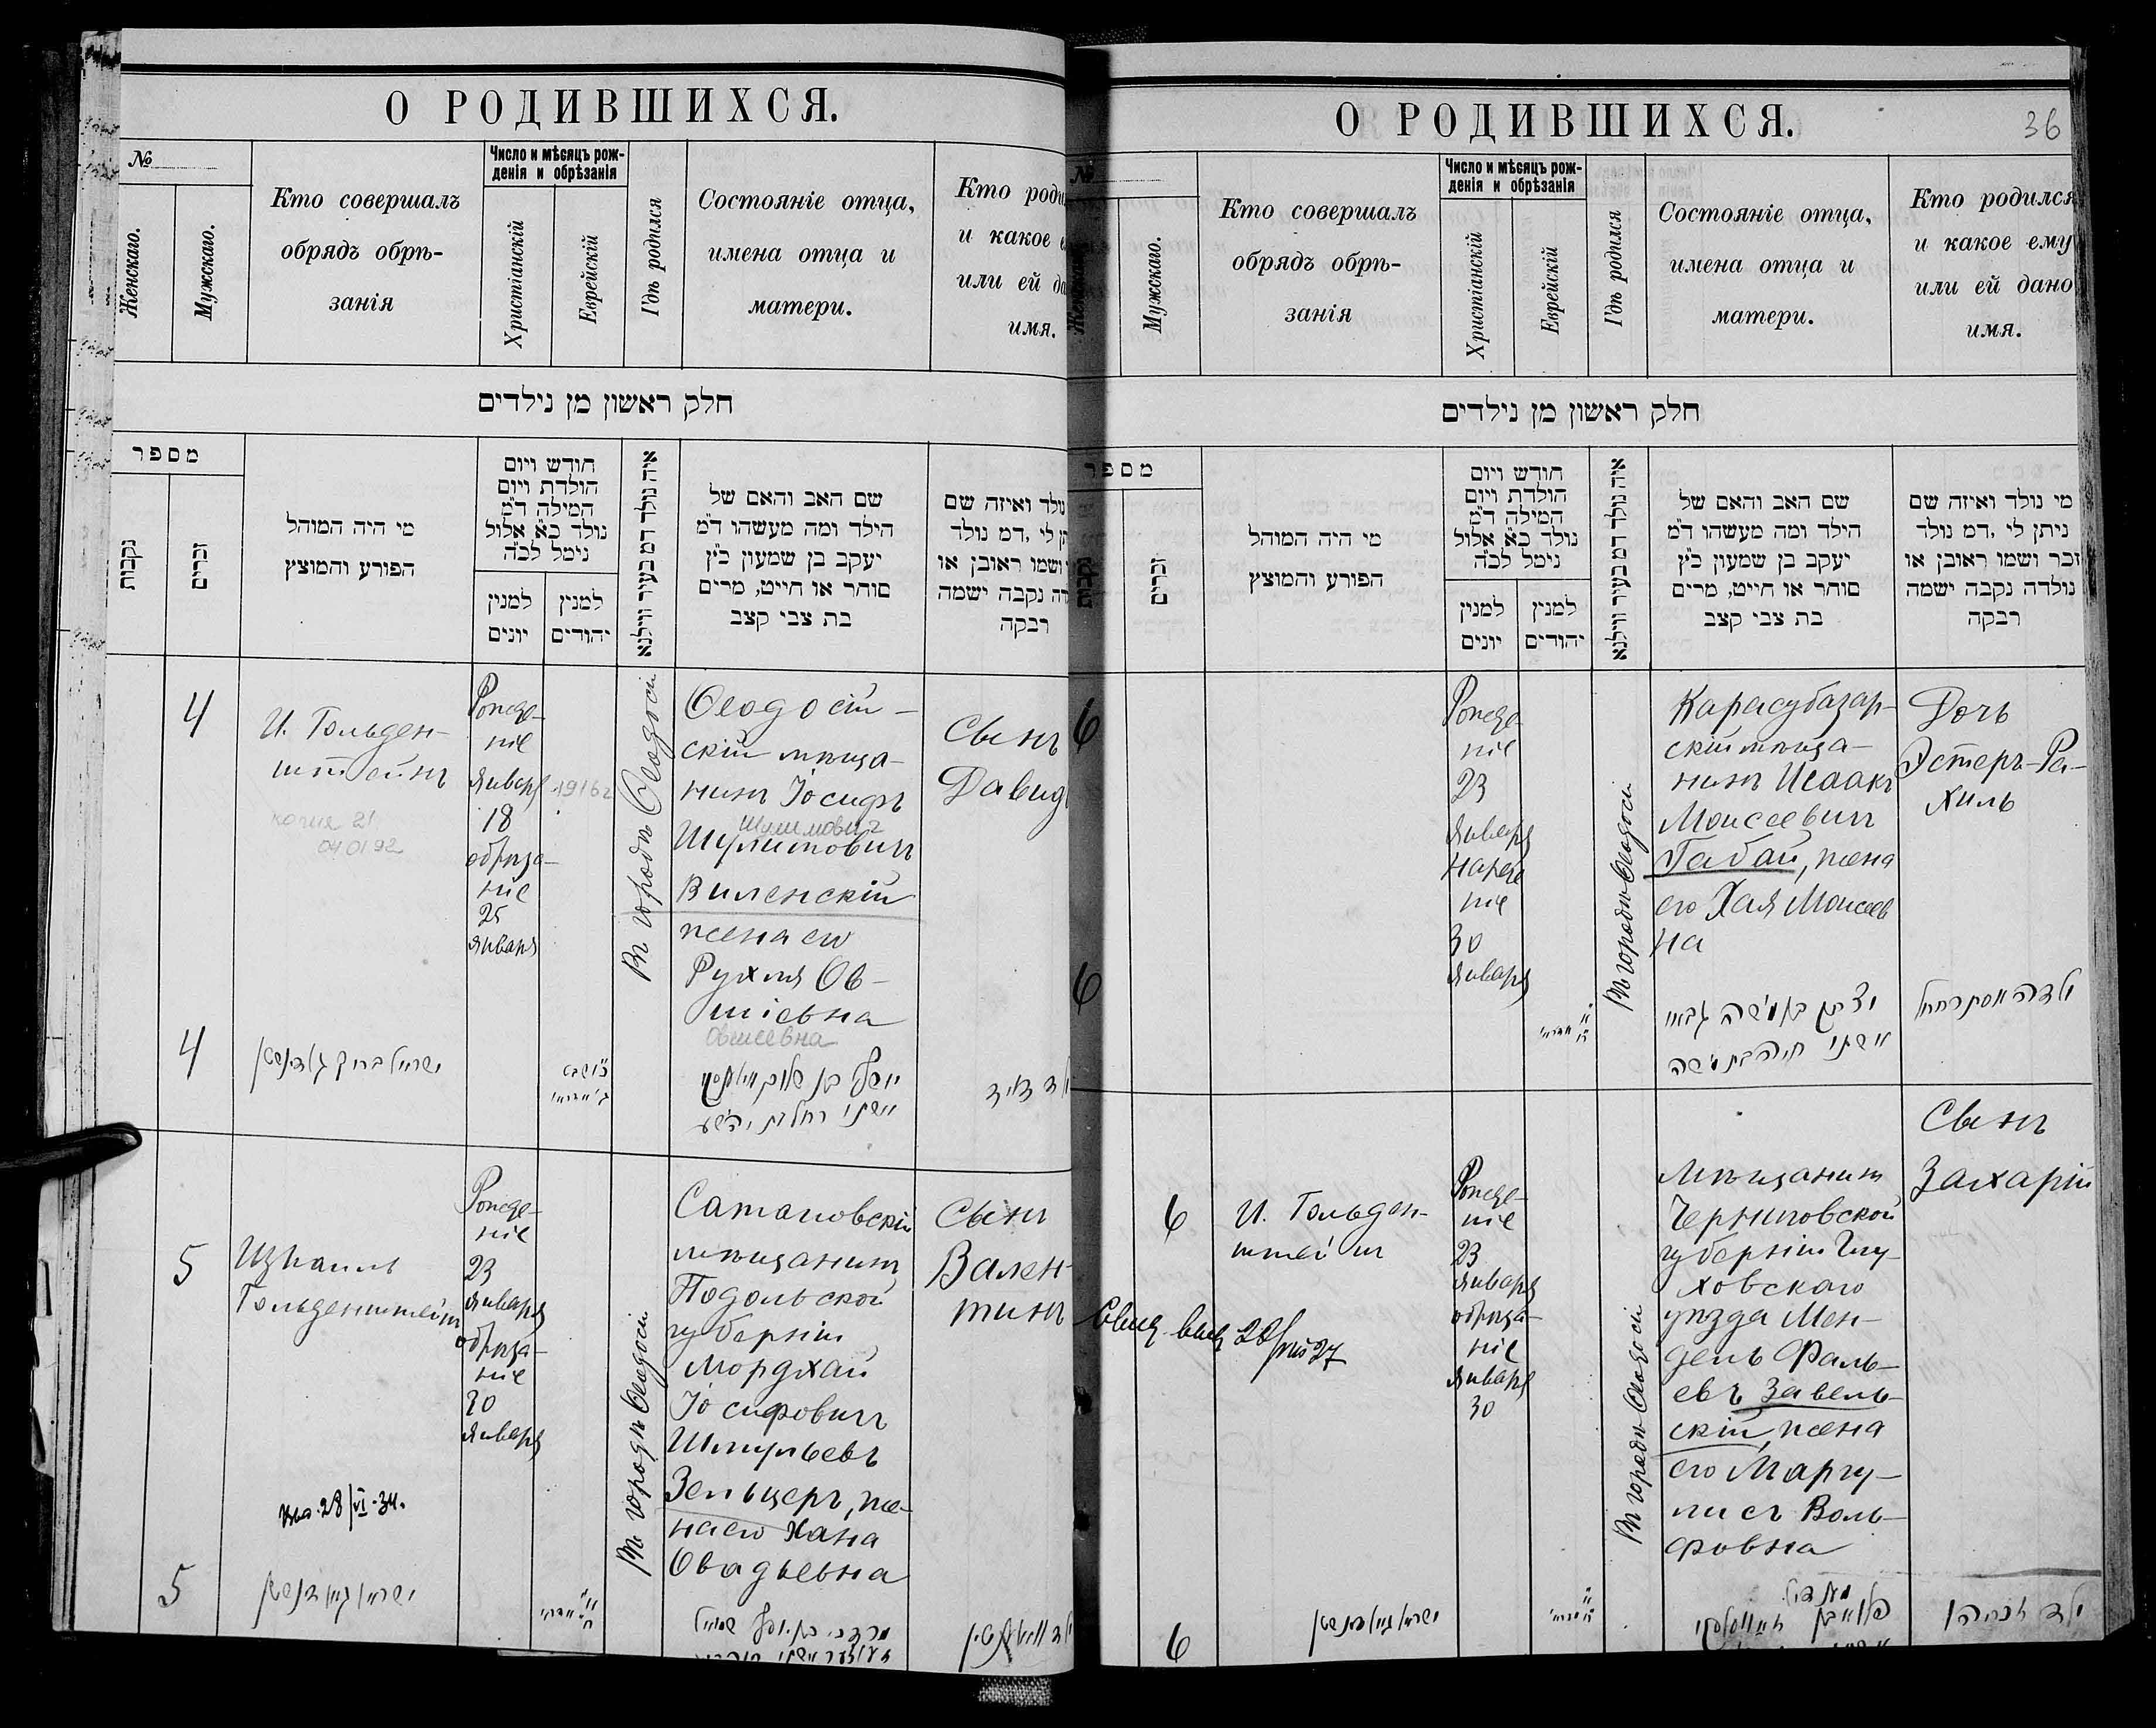 О РОДИВШИХСЯ.
№
Женскаго.
Мужскаго.
Кто совершалъ
обрядъ обрѣ-
занія
Число и мѣсяцъ рож-
денія и обрѣзанія
Христіанскій
Еврейскій
Гдѣ родился
Состояніе отца,
имена отца и
матери.
Кто роди
и какое е
или ей да
имя.
חלק ראשון מן נילדים
מספר
נקבות
זכרים
מי היה המוהל
הפורע והמוצץ
חודש ויום
הולדת ויום
המילה ד״מ
נולד כ״א אלול
נימל לכ״ה
למנין
יונים
למנין
יהודים
איה נולד דמ בעיר ווילנא
שם האב והאם של
הילד ומה מעשהו ד״מ
יעקב בן שמעון כ״ץ
סוחר או חייט, מרים
בת צבי קצב
נולד ואיזה שם
תן לי ,דמ נולד
ושמו ראובן או
דה נקבה ישמה
רבקה
4
И. Гольден-
штейнъ
копия 21
04 01 92
Рожде-
ніе
январь
18
обрѣза-
ніе
25
января
1916 г
Въ городѣ Ѳеодосіи
Ѳеодосій-
скій мѣща-
нинъ Іосифъ
Шулимович
Шулимовичъ
Виленскій
жена его
Рухля Ов-
шіевна
Овшиевна
Сынъ
Давидъ
4
ילד דוד
5
Израиль
Гольденштейнъ
Рожде-
ніе
23
января
обрѣза-
ніе
30
января
Въ городѣ Ѳеодосіи
Сатановскій
мѣщанинъ
Подольской
губерніи
Мордхай
Іосифовичъ
Шмульевъ
Зельцеръ, же-
на его Хана
Овадьевна
Сынъ
Вален-
тинъ
28/VI-34.
5
О РОДИВШИХСЯ.
36
№
Женскаго.
Мужскаго.
Кто совершалъ
обрядъ обрѣ-
занія
Число и мѣсяцъ рож-
денія и обрѣзанія
Христіанскій
Еврейскій
Гдѣ родился
Состояніе отца,
имена отца и
матери.
Кто родился
и какое ему
или ей дано
имя.
חלק ראשון מן נילדים
מספר
נקבות
זכרים
מי היה המוהל
הפורע והמוצץ
חודש ויום
הולדת ויום
המילה ד״מ
נולד כ״א אלול
נימל לכ״ה
למנין
יונים
למנין
יהודים
איה נולד דמ בעיר ווילנא
שם האב והאם של
הילד ומה מעשהו ד״מ
יעקב בן שמעון כ״ץ
סוחר או חייט, מרים
בת צבי קצב
מי נולד ואיזה שם
ניתן לי ,דמ נולד
זכר ושמו ראובן או
נולדה נקבה ישמה
רבקה
6
Рожде-
ніе
23
января
нарече
ніе
30
января
Въ городѣ Ѳеодосіи
Карасубазар-
скій мѣща-
нинъ Исаакъ
Моисеевичъ
Габай, жена
его Хая Моисеев
на
Дочь
Эстеръ-Ра-
хиль
6
יצחק בן משה גבאי
אשתו חיה בת משה
ילדה אסתר רחל
6
И. Гольден-
штейнъ
Рожде-
ніе
23
января
обрѣза-
ніе
января
30
Въ городѣ Ѳеодосіи
Мѣщанинъ
Черниговской
губерніи Глу-
ховскаго
уѣзда Мен-
дель Фаль-
евъ Завель-
скій, жена
его Маргу-
лисъ Воль-
фовна
Сынъ
Захарій
6